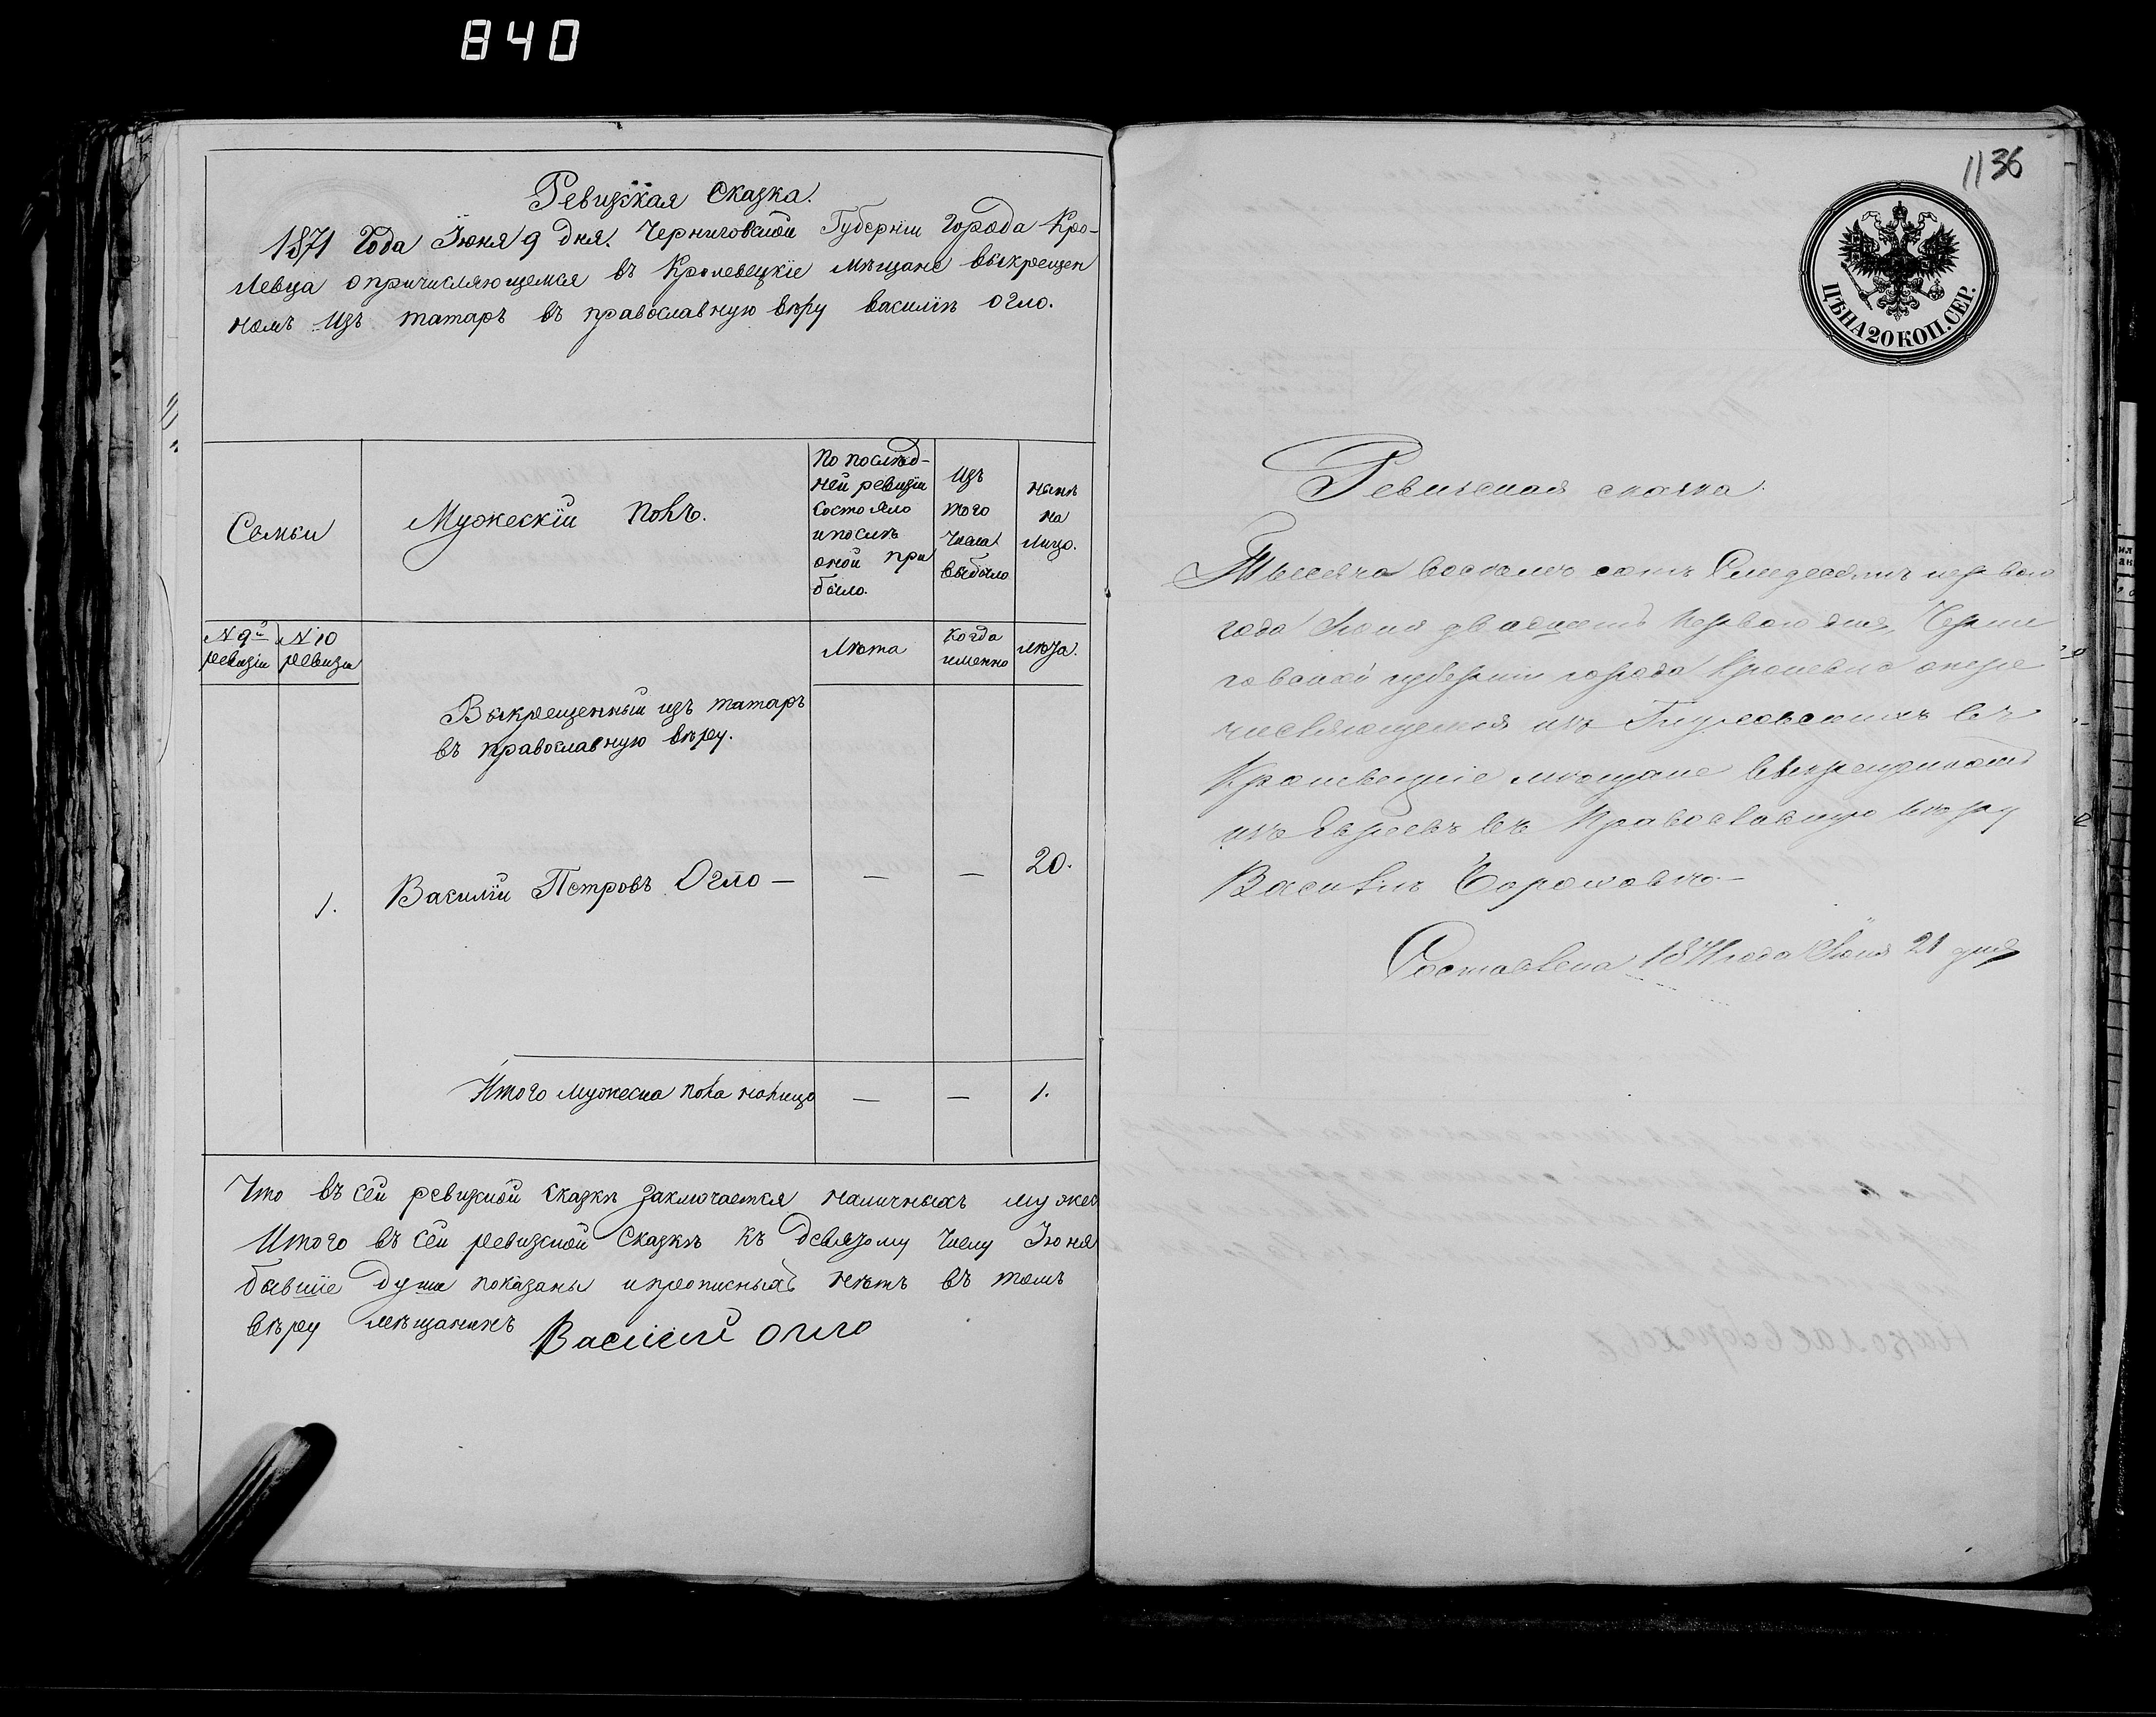 840
Ревизская Сказка.
1871 Года Іюня 9 дня. Черниговской Губерніи города Кро-
левца опричисляющемся въ Кролевецкіе мѣщане выкрещен
номъ изъ татаръ въ православную вѣру василіѣ огло.
Семьи
Мужескій полъ.
По послѣд-
ней ревизіи
состояло
и послѣ
оной при
было.
Изъ
того
числа
выбыло
нынѣ
на
лицо.
N 9й ревизіи
N 10 ревизіи
Лѣта
когда
именно
лѣта.
Выкрещенный изъ татаръ
въ православную вѣру.
1. Василій Петровъ Огло — — — 20.
Итого мужеска пола налицо — — 1.
Что въ сей ревизкой сказкѣ заключается наличныхъ мужес
Итого въ сей ревизской Сказкѣ къ девятому числу Іюня
бывшіе души показаны и прописныхъ нѣтъ въ томъ
вѣру мѣщанинъ Василий огло
1136
ЦѢНА 20 КОП. СЕР.
Ревизская сказка.
Тысяча восемь сотъ Семдесятъ первого
года Іюня двадцать первого дня, Черни
говской губерніи города Кролевца опере
числяющемся изъ Глуховскихъ въ
Кролевецкіе мѣщане выкрещенномъ
изъ Евреевъ въ Православную вѣру
Василіѣ
Составлена 1871 года Іюня 21 дня